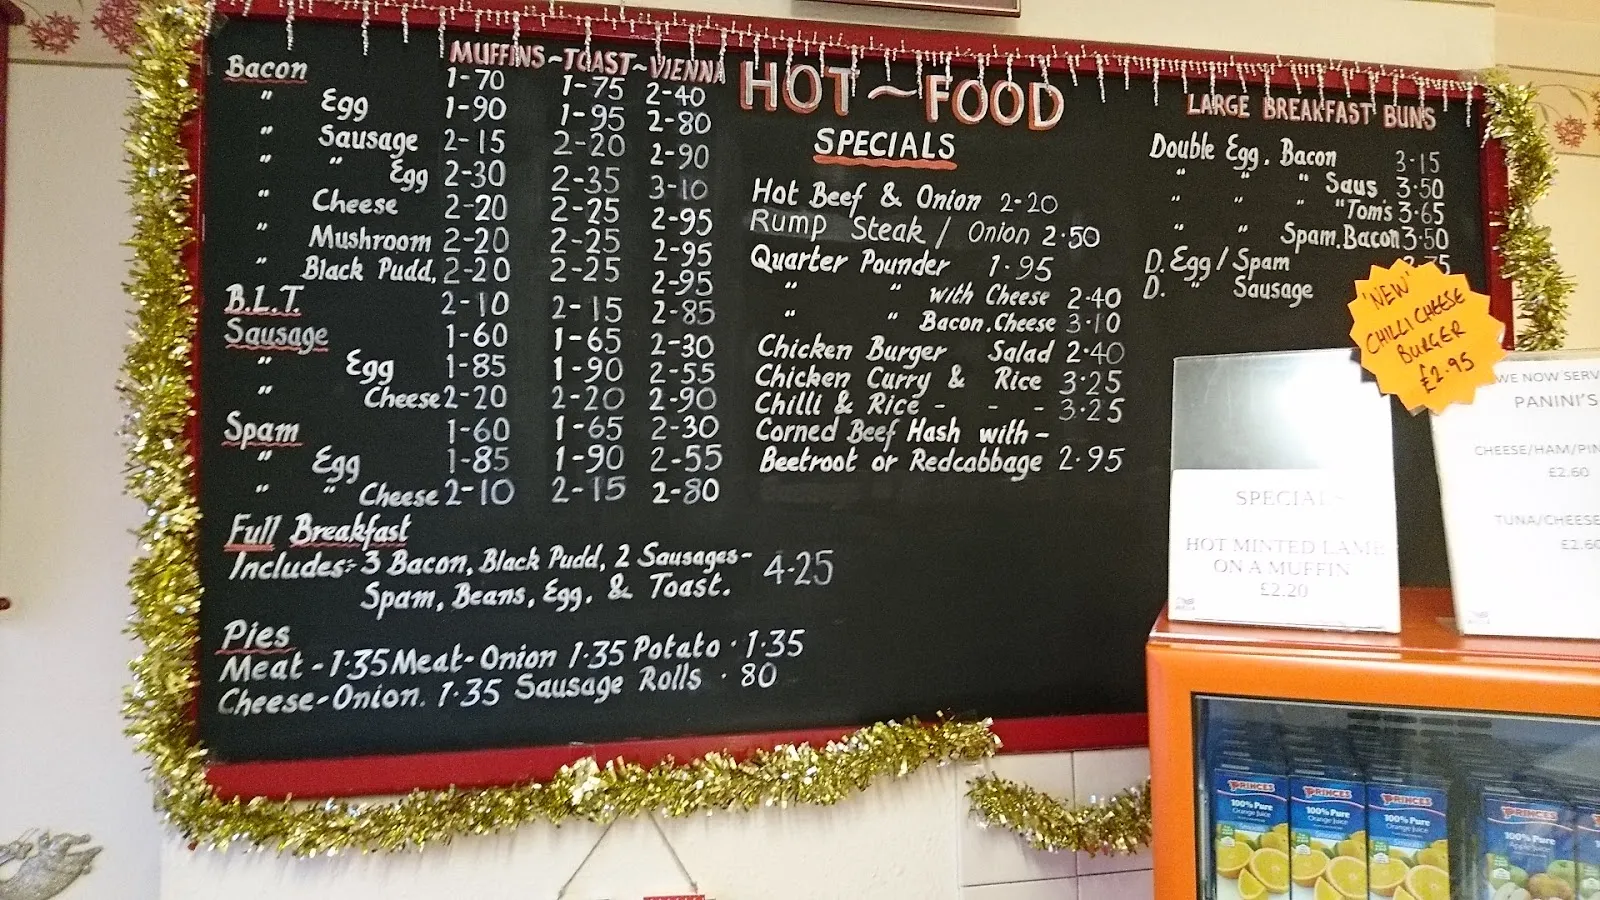 MUFFINS~TOAST~VIENNA
Bacon 1-70 1-75 2-40
" Egg 1-90 1-95 2-80
" Sausage 2-15 2-20 2-90
" " Egg 2-30 2-35 3-10
" Cheese 2-20 2-25 2-95
" Mushroom 2-20 2-25 2-95
" Black Pudd, 2-20 2-25 2-95
B.L.T. 2-10 2-15 2-85
Sausage 1-60 1-65 2-30
" Egg 1-85 1-90 2-55
" Cheese 2-20 2-20 2-90
Spam 1-60 1-65 2-30
" Egg 1-85 1-90 2-55
" " Cheese 2-10 2-15 2-80
Full Breakfast
Includes:- 3 Bacon, Black Pudd, 2 Sausages- 4-25
Spam, Beans, Egg. & Toast.
Pies
Meat - 1·35 Meat-Onion 1·35 Potato · 1·35
Cheese-Onion. 1·35 Sausage Rolls · 80
HOT ~ FOOD
SPECIALS
Hot Beef & Onion 2-20
Rump Steak / Onion 2·50
Quarter Pounder 1·95
" " with Cheese 2·40
" " Bacon.Cheese 3·10
Chicken Burger Salad 2·40
Chicken Curry & Rice 3·25
Chilli & Rice - - - 3·25
Corned Beef Hash with-
Beetroot or Redcabbage 2·95
LARGE BREAKFAST BUNS
Double Egg. Bacon 3·15
" " " Saus 3·50
" " " "Tom's 3·65
" " Spam.Bacon 3·50
D. Egg / Spam
D. " Sausage
'NEW'
CHILLI CHEESE
BURGER
£2.95
SPECIALS
HOT MINTED LAMB
ON A MUFFIN
£2.20
WE NOW
PANINI'S
CHEESE/HAM/
£2.60
TUNA/CHEESE
£2.60
PRINCES
100% Pure
Orange Juice
Smooth
PRINCES
100% Pure
Orange Juice
Smooth
PRINCES
100% Pure
Orange Juice
Smooth
PRINCES
100% Pure
Apple Juice